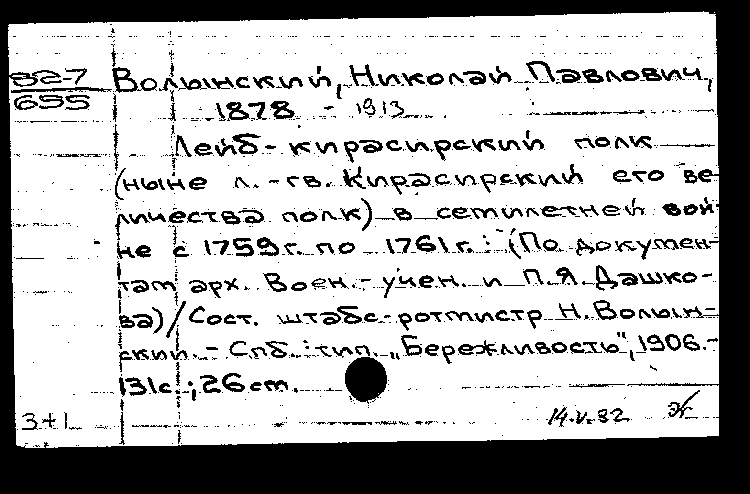 82-7
655
Волынский, Николай Павлович,
1878 - 1913
Лейб-кирасирский полк
(ныне л.-гв. Кирасирский его ве-
личества полк) в семилетней вой-
не с 1759г. по 1761г.: (По докумен-
там арх. Воен.-учен. и П.Я. Дашко-
ва)/Сост. штабс-ротмистр Н. Волын-
ский. - Спб.: тип. „Бережливость", 1906.-
131с.; 26см.
3+1
14.V.82